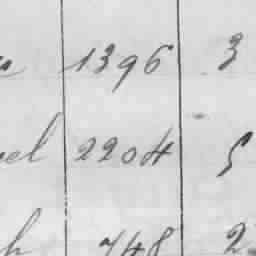 1396 3
el 2204 5
h 748 2